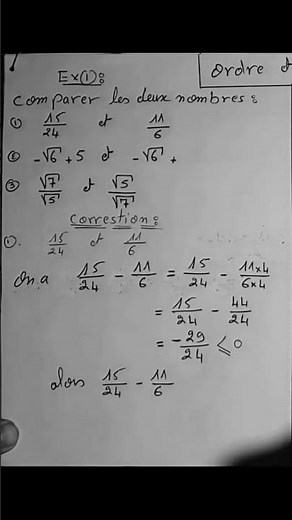 Ordre d
Ex(1):
Comparer les deux nombres :
① 15/24 et 11/6
② -√6 + 5 et -√6 +
③ √7/√5 et √5/√7
Correstion :
①. 15/24 et 11/6
On a 15/24 - 11/6 = 15/24 - 11×4/6×4
= 15/24 - 44/24
= -29/24 ≤ 0
alors 15/24 - 11/6